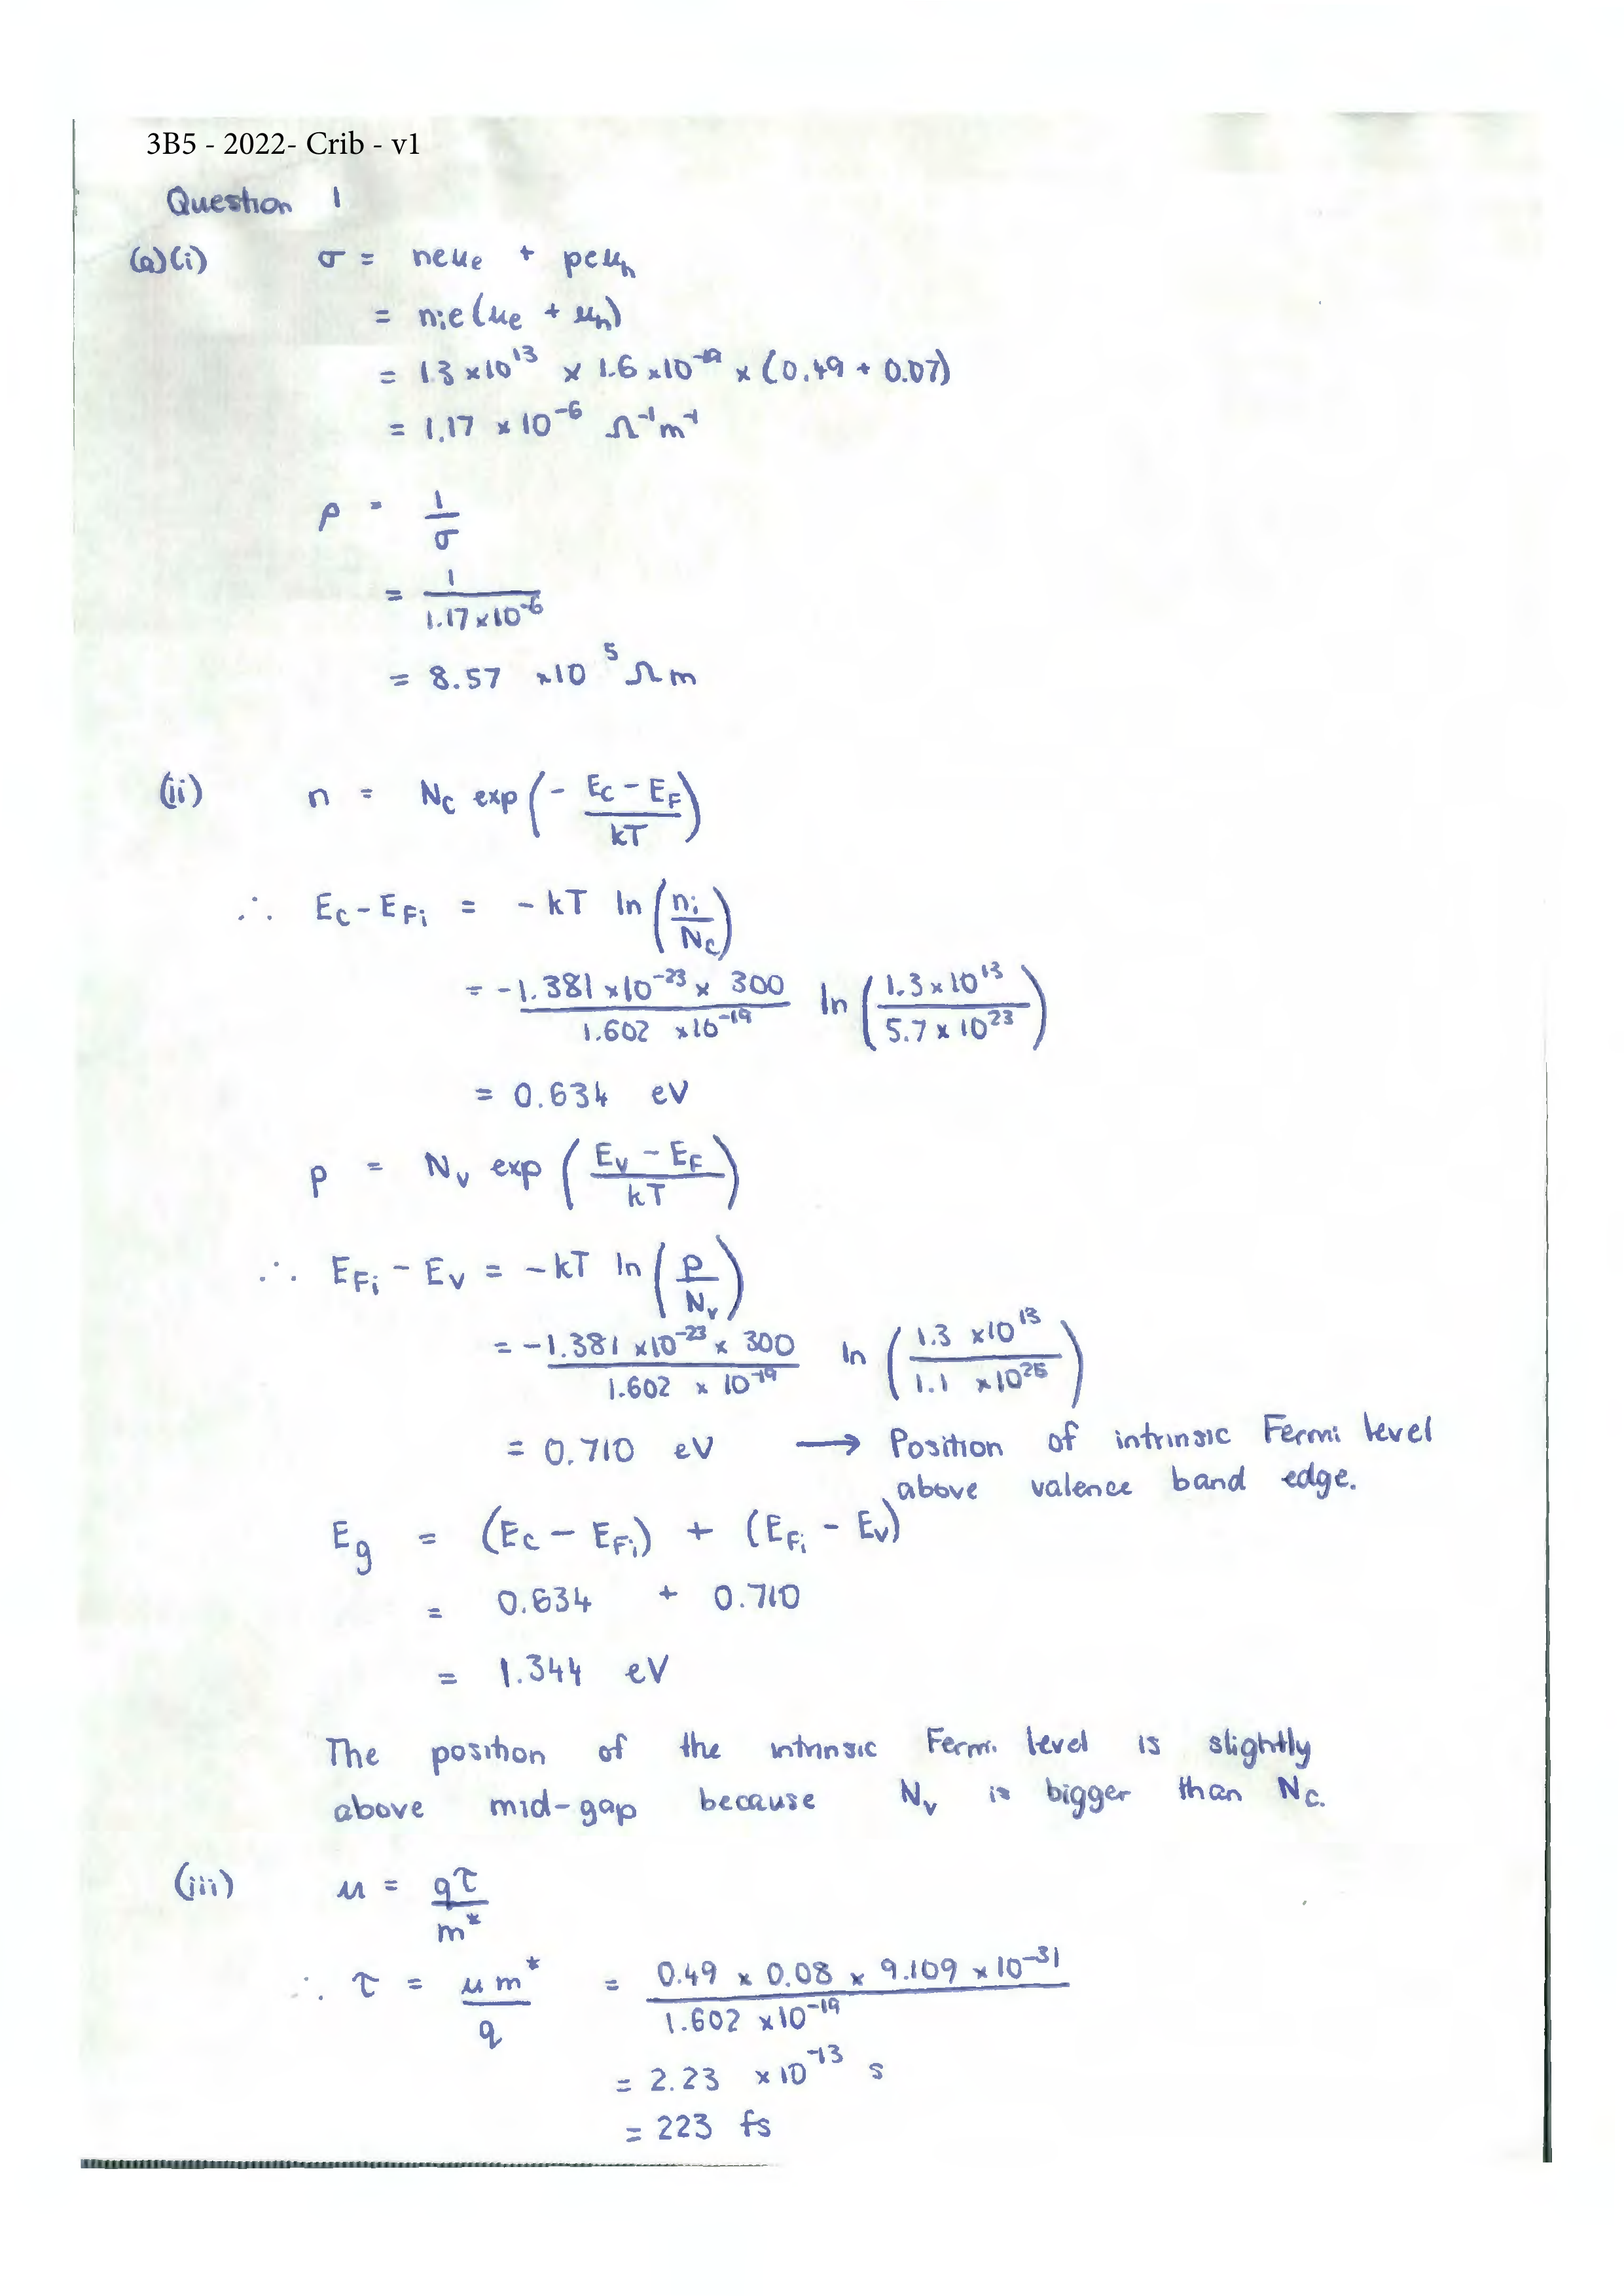 3B5 - 2022- Crib - v1
Question 1
(a)(i) σ = neμe + peμh
= nie(μe + μh)
= 1.3 ×10^13 × 1.6 ×10^-19 × (0.49 + 0.07)
= 1.17 ×10^-6 Ω^-1m^-1
ρ = 1/σ
= 1/(1.17×10^-6)
= 8.57 ×10^5 Ωm
(ii) n = Nc exp(- (Ec - EF)/kT)
∴ Ec - EFi = -kT ln(ni/Nc)
= -1.381 ×10^-23 × 300 / 1.602 ×10^-19 ln(1.3×10^13 / 5.7×10^23)
= 0.634 eV
p = Nv exp((Ev - EF)/kT)
∴ EFi - Ev = -kT ln(p/Nv)
= -1.381 ×10^-23 × 300 / 1.602 × 10^-19 ln(1.3 ×10^13 / 1.1 ×10^25)
= 0.710 eV → Position of intrinsic Fermi level
above valence band edge.
Eg = (Ec - EFi) + (EFi - Ev)
= 0.634 + 0.710
= 1.344 eV
The position of the intrinsic Fermi level is slightly
above mid-gap because Nv is bigger than Nc.
(iii) μ = qτ/m*
∴ τ = μm*/q = 0.49 × 0.08 × 9.109 ×10^-31 / 1.602 ×10^-19
= 2.23 ×10^-13 s
= 223 fs